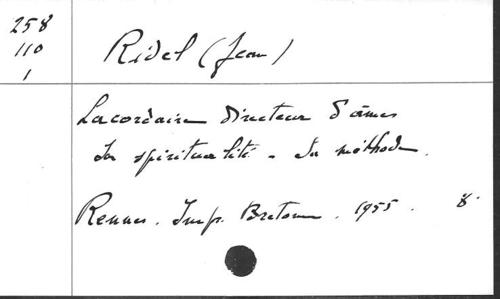 258
110
1
Ridel (Jean)
Lacordaire directeur d'âmes
Sa spiritualité - Sa méthode.
Rennes. Imp. Bretonne. 1955. 8°